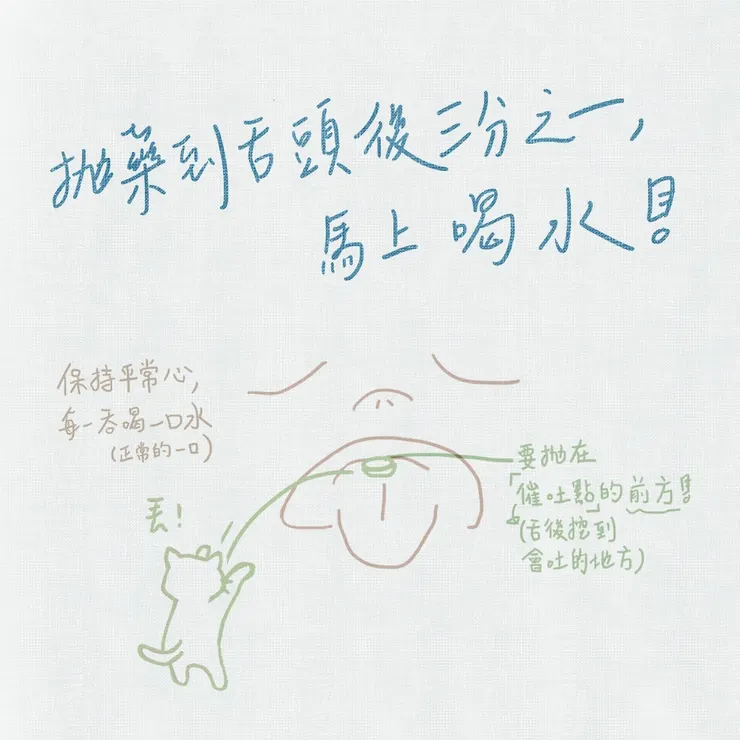 拋藥到舌頭後三分之一,
馬上喝水!!
保持平常心,
每一吞喝一口水
(正常的一口)
丟!
要拋在
「催吐點」的前方!!
(舌後挖到
會吐的地方)